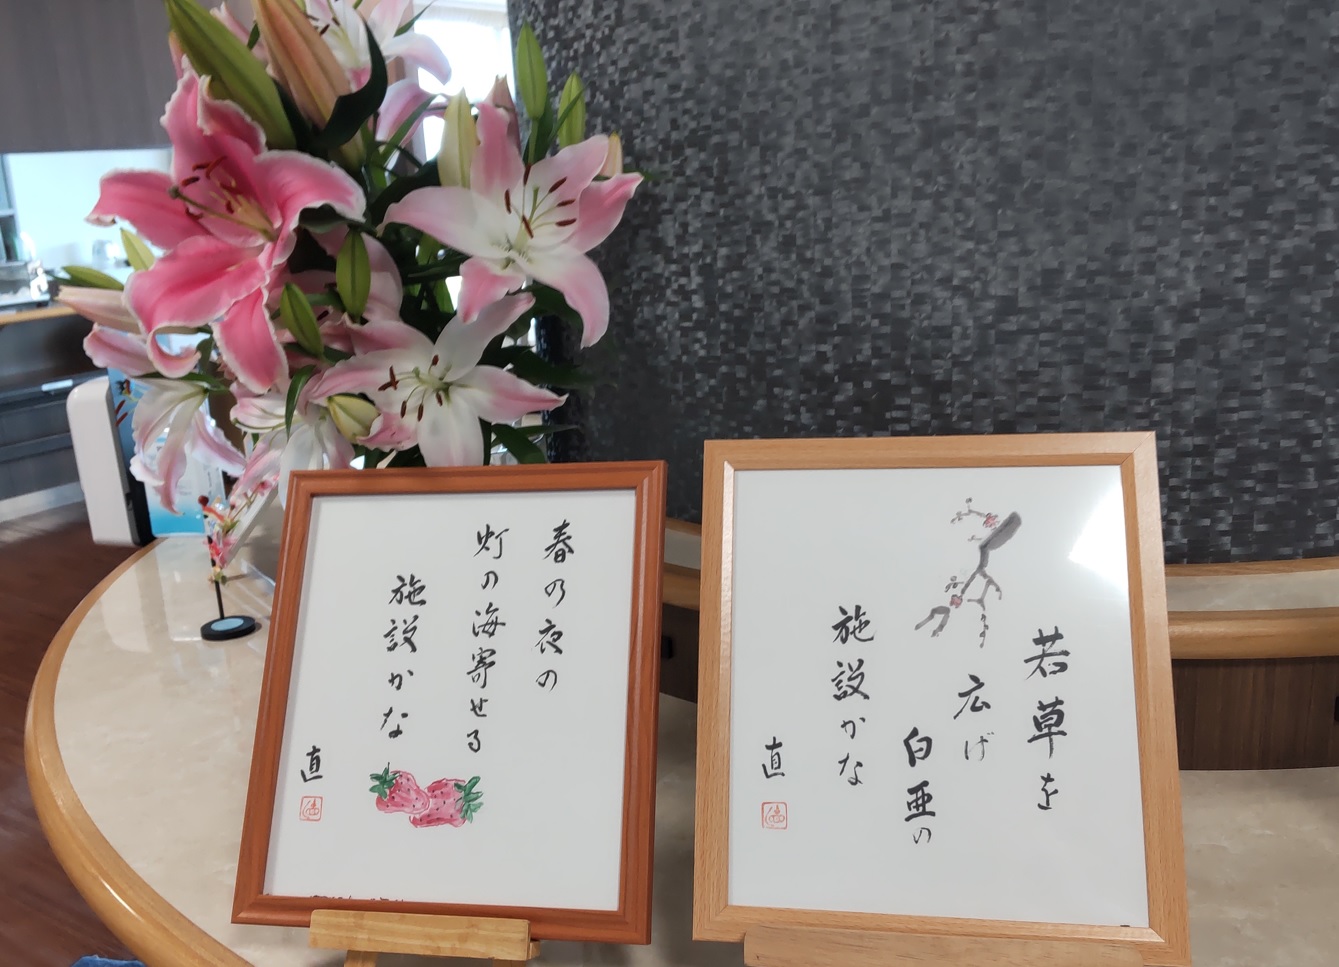 春の夜の
灯の海寄せる
施設かな
直
若草を
広げ
白亜の
施設かな
直